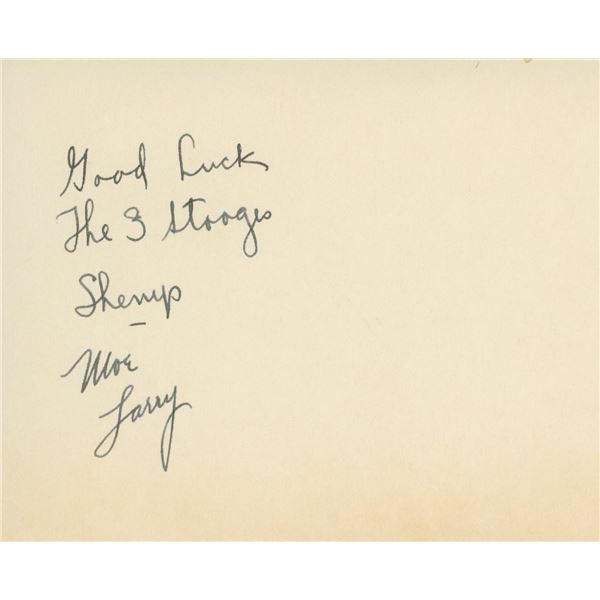 Good Luck
The 3 Stooges
Shemp
Moe
Larry